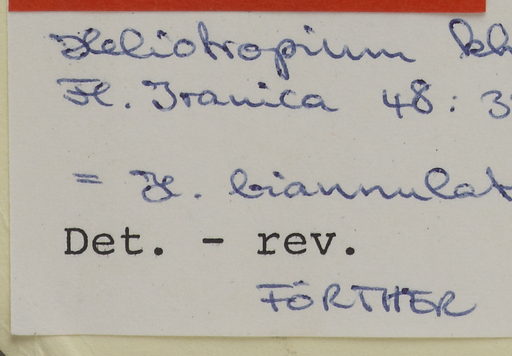 Heliotropium kh
Fl. Iranica 48: 3
= H. biannulat
Det. - rev.
FÖRTHER